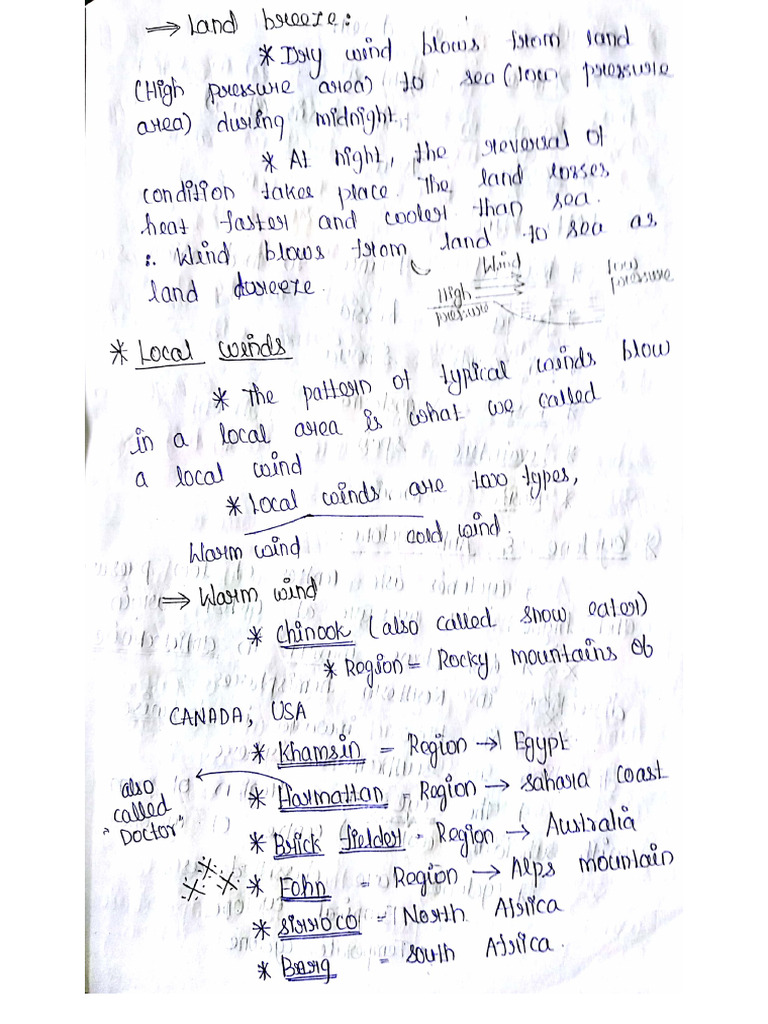 ⇒ Land breeze:
* Dry wind blows from land
(High pressure area) to sea (low pressure
area) during midnight.
* At night, the reversal of
condition takes place. The land losses
heat faster and cooler than sea.
∴ Wind blows from land to sea as
land breeze.
Wind
High pressure
low pressure
* Local winds
* The pattern of typical winds blow
in a local area is what we called
a local wind
* Local winds are two types,
Warm wind cold wind.
⇒ Warm wind
* Chinook (also called snow eater)
* Region = Rocky mountains of
CANADA, USA
* Khamsin = Region → Egypt
* Harmattan - Region → Sahara coast
also called "Doctor"
* Brick fielder - Region → Australia
* Fohn = Region → Alps mountain
* Sirroco = North Africa
* Berg = South Africa.